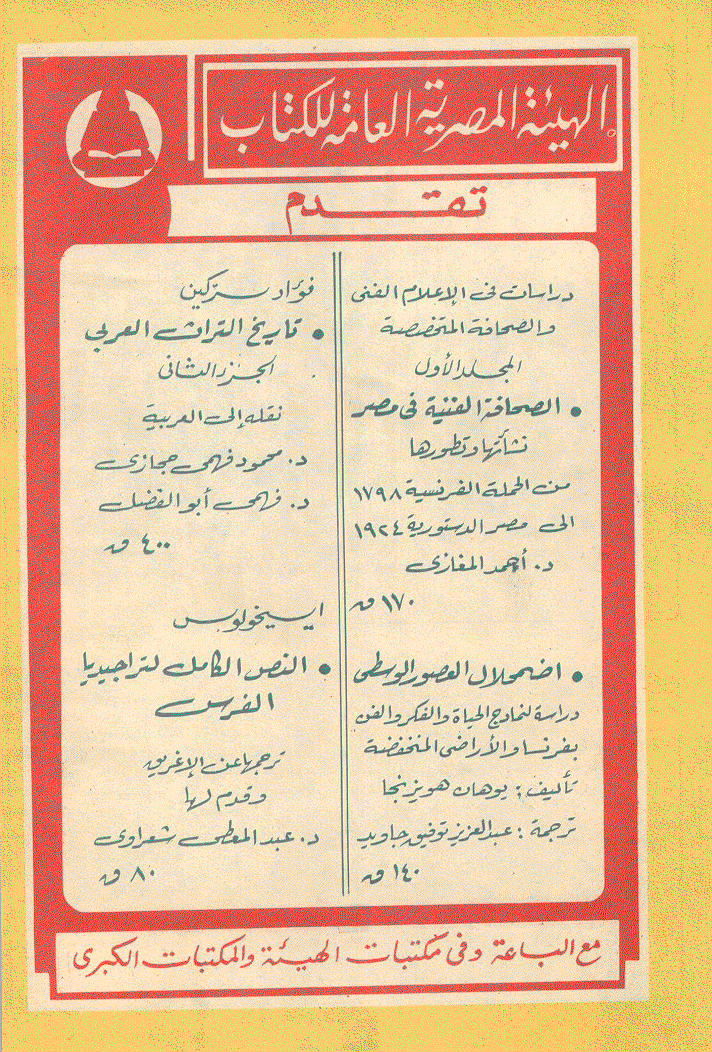 الهيئة المصرية العامة للكتاب
تقدم
دراسات فى الإعلام الفنى
والصحافة المتخصصة
المجلد الأول
• الصحافة الفنية فى مصر
نشأتها وتطورها
من الحملة الفرنسية ١٧٩٨
الى مصر الدستورية ١٩٢٤
د. أحمد المغازى
١٧٠ ق
• اضمحلال العصور الوسطى
دراسة لنماذج الحياة والفكر والفن
بفرنسا والأراضى المنخفضة
تأليف : يوهان هويزنجا
ترجمة : عبد العزيز توفيق جاويد
١٤٠ ق
فؤاد سزكين
• تاريخ التراث العربي
الجزء الثانى
نقله إلى العربية
د. محمود فهمى حجازى
د. فهمى أبو الفضل
٤٠٠ ق
ايسيخولوس
• النص الكامل لتراجيديا
الفرس
ترجمها عن الإغريق
وقدم لها
د. عبد المعطى شعراوى
٨٠ ق
مع الباعة وفى مكتبات الهيئة والمكتبات الكبرى